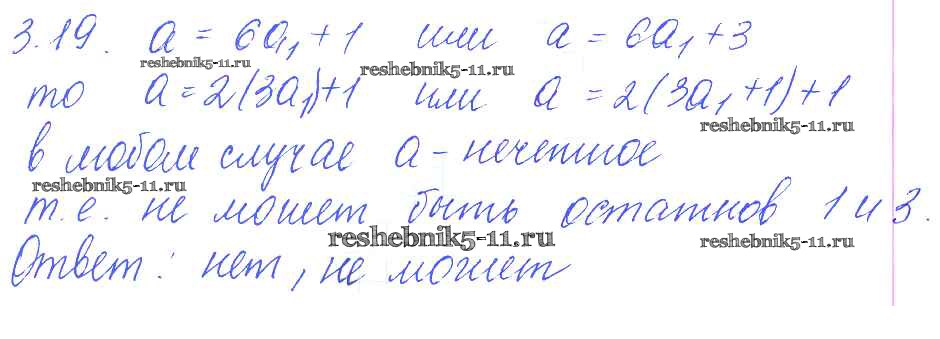 3.19. a = 6a₁ + 1 или a = 6a₁ + 3
reshebnik5-11.ru
reshebnik5-11.ru
то a = 2(3a₁)+1 или a = 2(3a₁ +1)+1
reshebnik5-11.ru
в любом случае a - нечетное
reshebnik5-11.ru
т.е. не может быть остатков 1 и 3.
reshebnik5-11.ru
reshebnik5-11.ru
Ответ: нет, не может